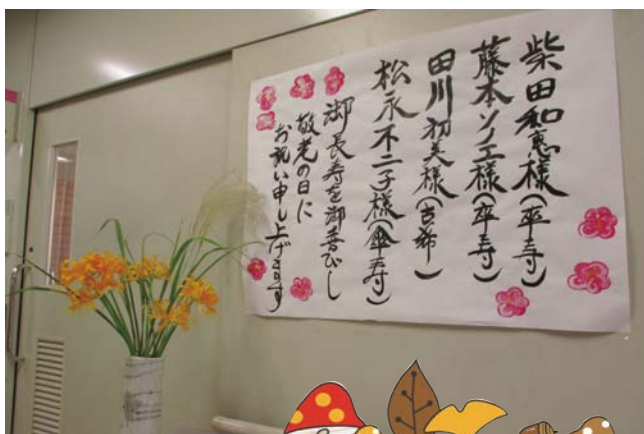 柴田和恵様（卒寿）
藤本ソノエ様（卒寿）
田川初美様（古希）
松永不二子様（傘寿）
御長寿を御喜びし
敬老の日に
お祝い申し上げます